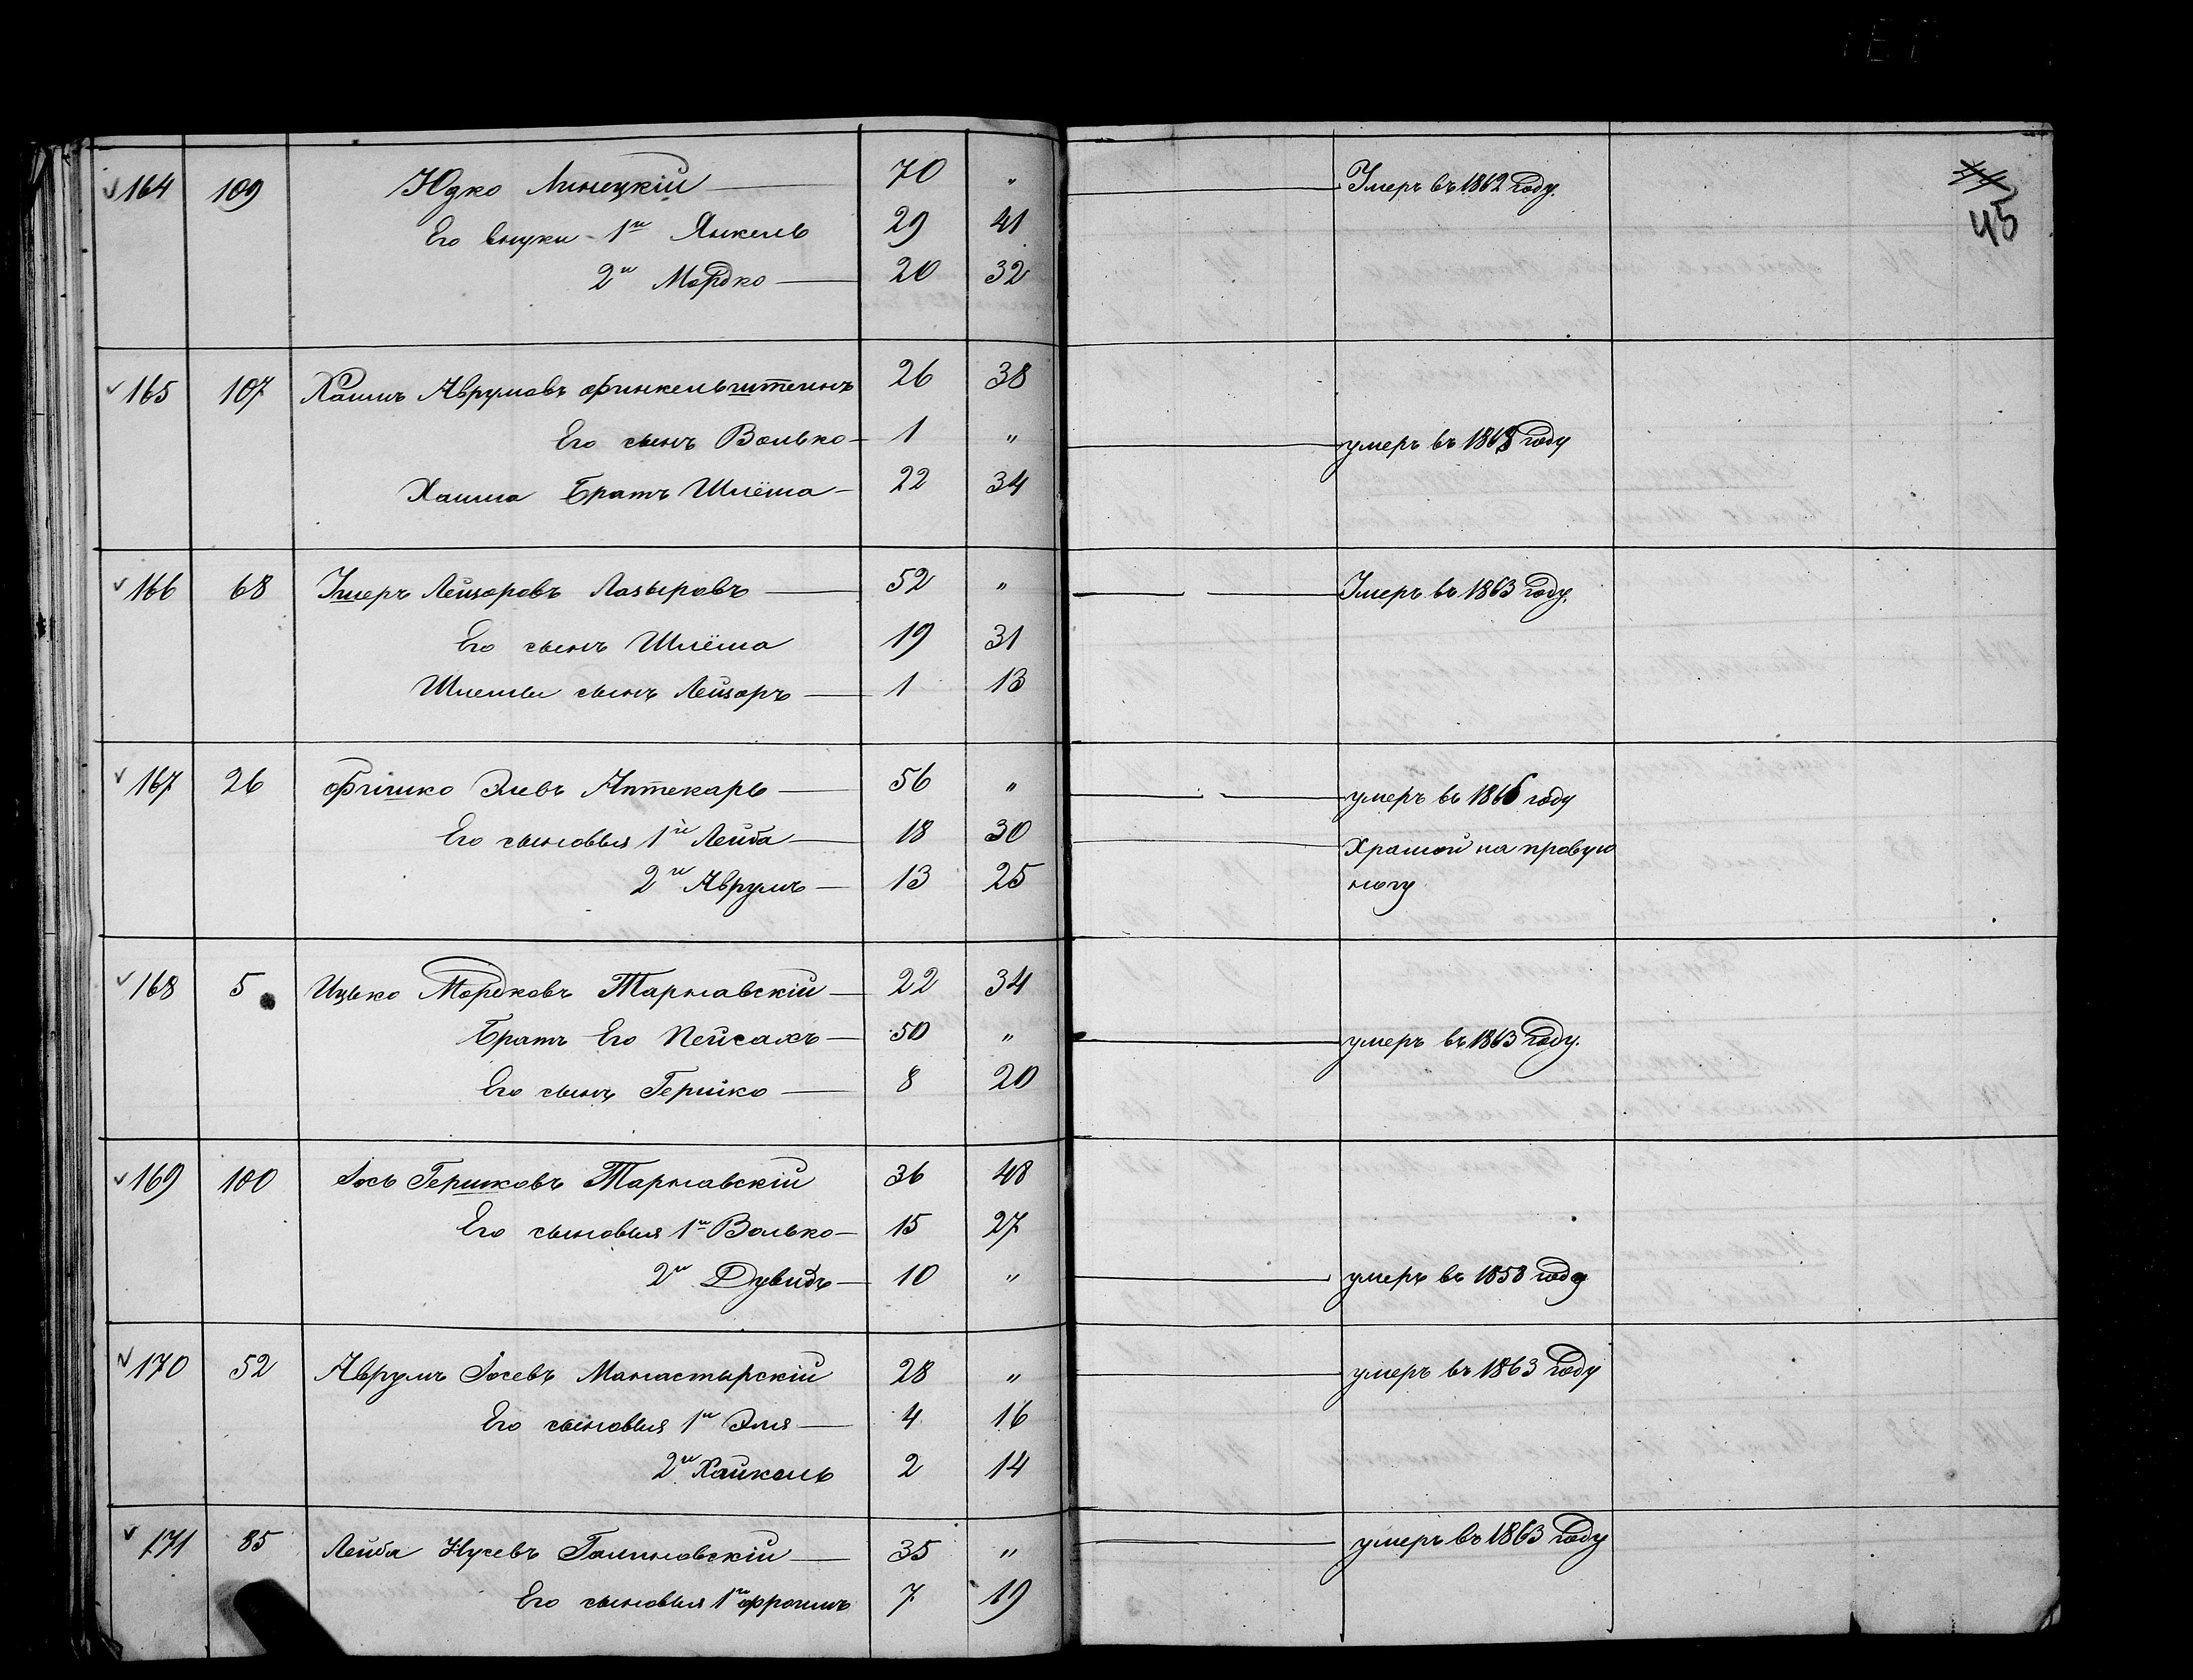 45
164 109 Юдко Линецкій — 70 " — Умеръ въ 1862 году.
Его внуки 1й Янкель 29 41
2й Мордко — 20 32
165 107 Хаимъ Аврумовъ Финкельштеинъ 26 38
Его сынъ Волько — 1 " — умеръ въ 1863 году
Хаима Братъ Шлёма — 22 34
166 68 Умеръ Лейзоровъ Лазыровъ — 52 " — Умеръ въ 1863 году.
Его сынъ Шлёма 19 31
Шлемы сынъ Лейзоръ — 1 13
167 26 Фишко Элевъ Аптекарь — 56 " — умеръ въ 1866 году
Его сыновья 1й Лейба — 18 30 — Храмой на правую
2й Аврумъ — 13 25 ногу
168 5 Ицько Мордковъ Тарнавскій — 22 34
Братъ Его Пейсахъ — 50 " — умеръ въ 1863 году.
Его сынъ Гершко — 8 20
169 100 Іось Гершковъ Тарнавскій 36 48
Его сыновья 1й Волько — 15 27
2й Дувидъ — 10 " — умеръ въ 1858 году
170 52 Аврумъ Іосевъ Манастырскій 28 " — умеръ въ 1863 году
Его сыновья 1й Эля — 4 16
2й Хайкель 2 14
171 85 Лейба Нусевъ Галиновскій — 35 " — умеръ въ 1863 году
Его сыновья 1й Фроимъ 7 19